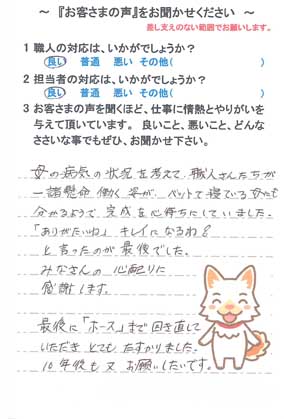 ～ 『お客さまの声』をお聞かせください ～
差し支えのない範囲でお願いします。
1 職人の対応は、いかがでしょうか?
良い 普通 悪い その他( )
2 担当者の対応は、いかがでしょうか?
良い 普通 悪い その他( )
3 お客さまの声を聞くほど、仕事に情熱とやりがいを
与えて頂いています。 良いこと、悪いこと、どんな
ささいな事でもぜひ、お聞かせ下さい。
母の病気の状況を考えて 職人さんたちが
一諸懸命 働く姿が、ベットで寝ている母にも
分かるようで 完成を心待ちにしていました。
「ありがたいね」 キレイになるね?
と言ったのが 最後でした。
みなさんの 心配りに
感謝します。
最後に「ホース」まで 回き直して
いただき とても たすかりました。
10年後も又 お願いしたいです。